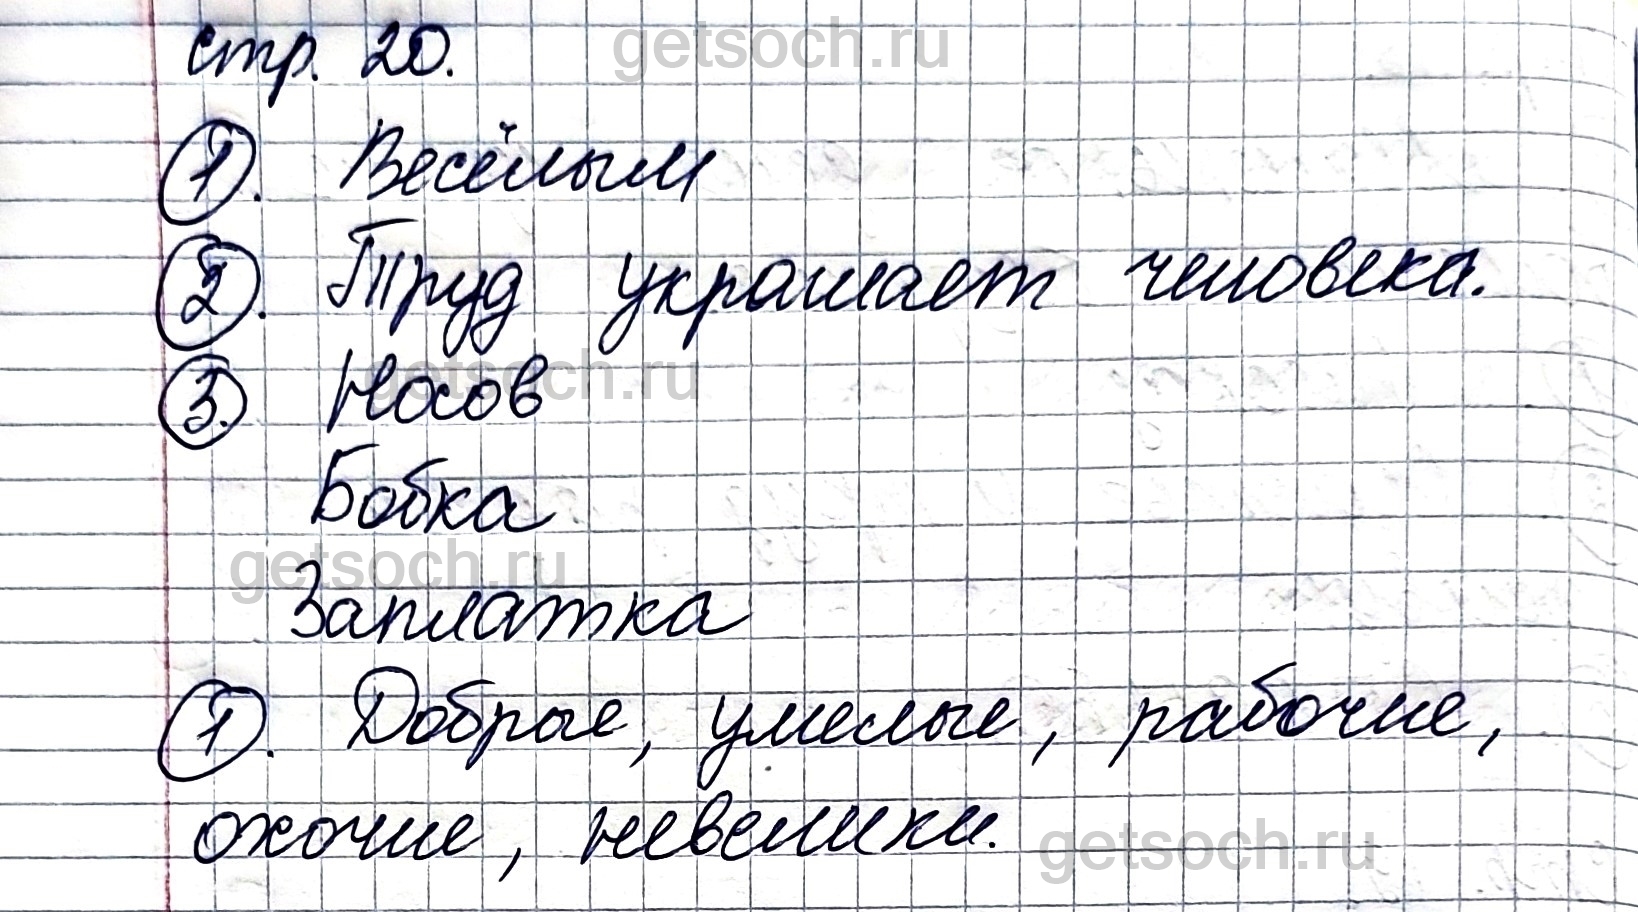 стр. 20.
getsoch.ru
1. Весёлым
2. Труд украшает человека.
3. Носов
getsoch.ru
Бобка
getsoch.ru
Заплатка
1. Добрые, умелые, рабочие,
охочие, невелики.
getsoch.ru